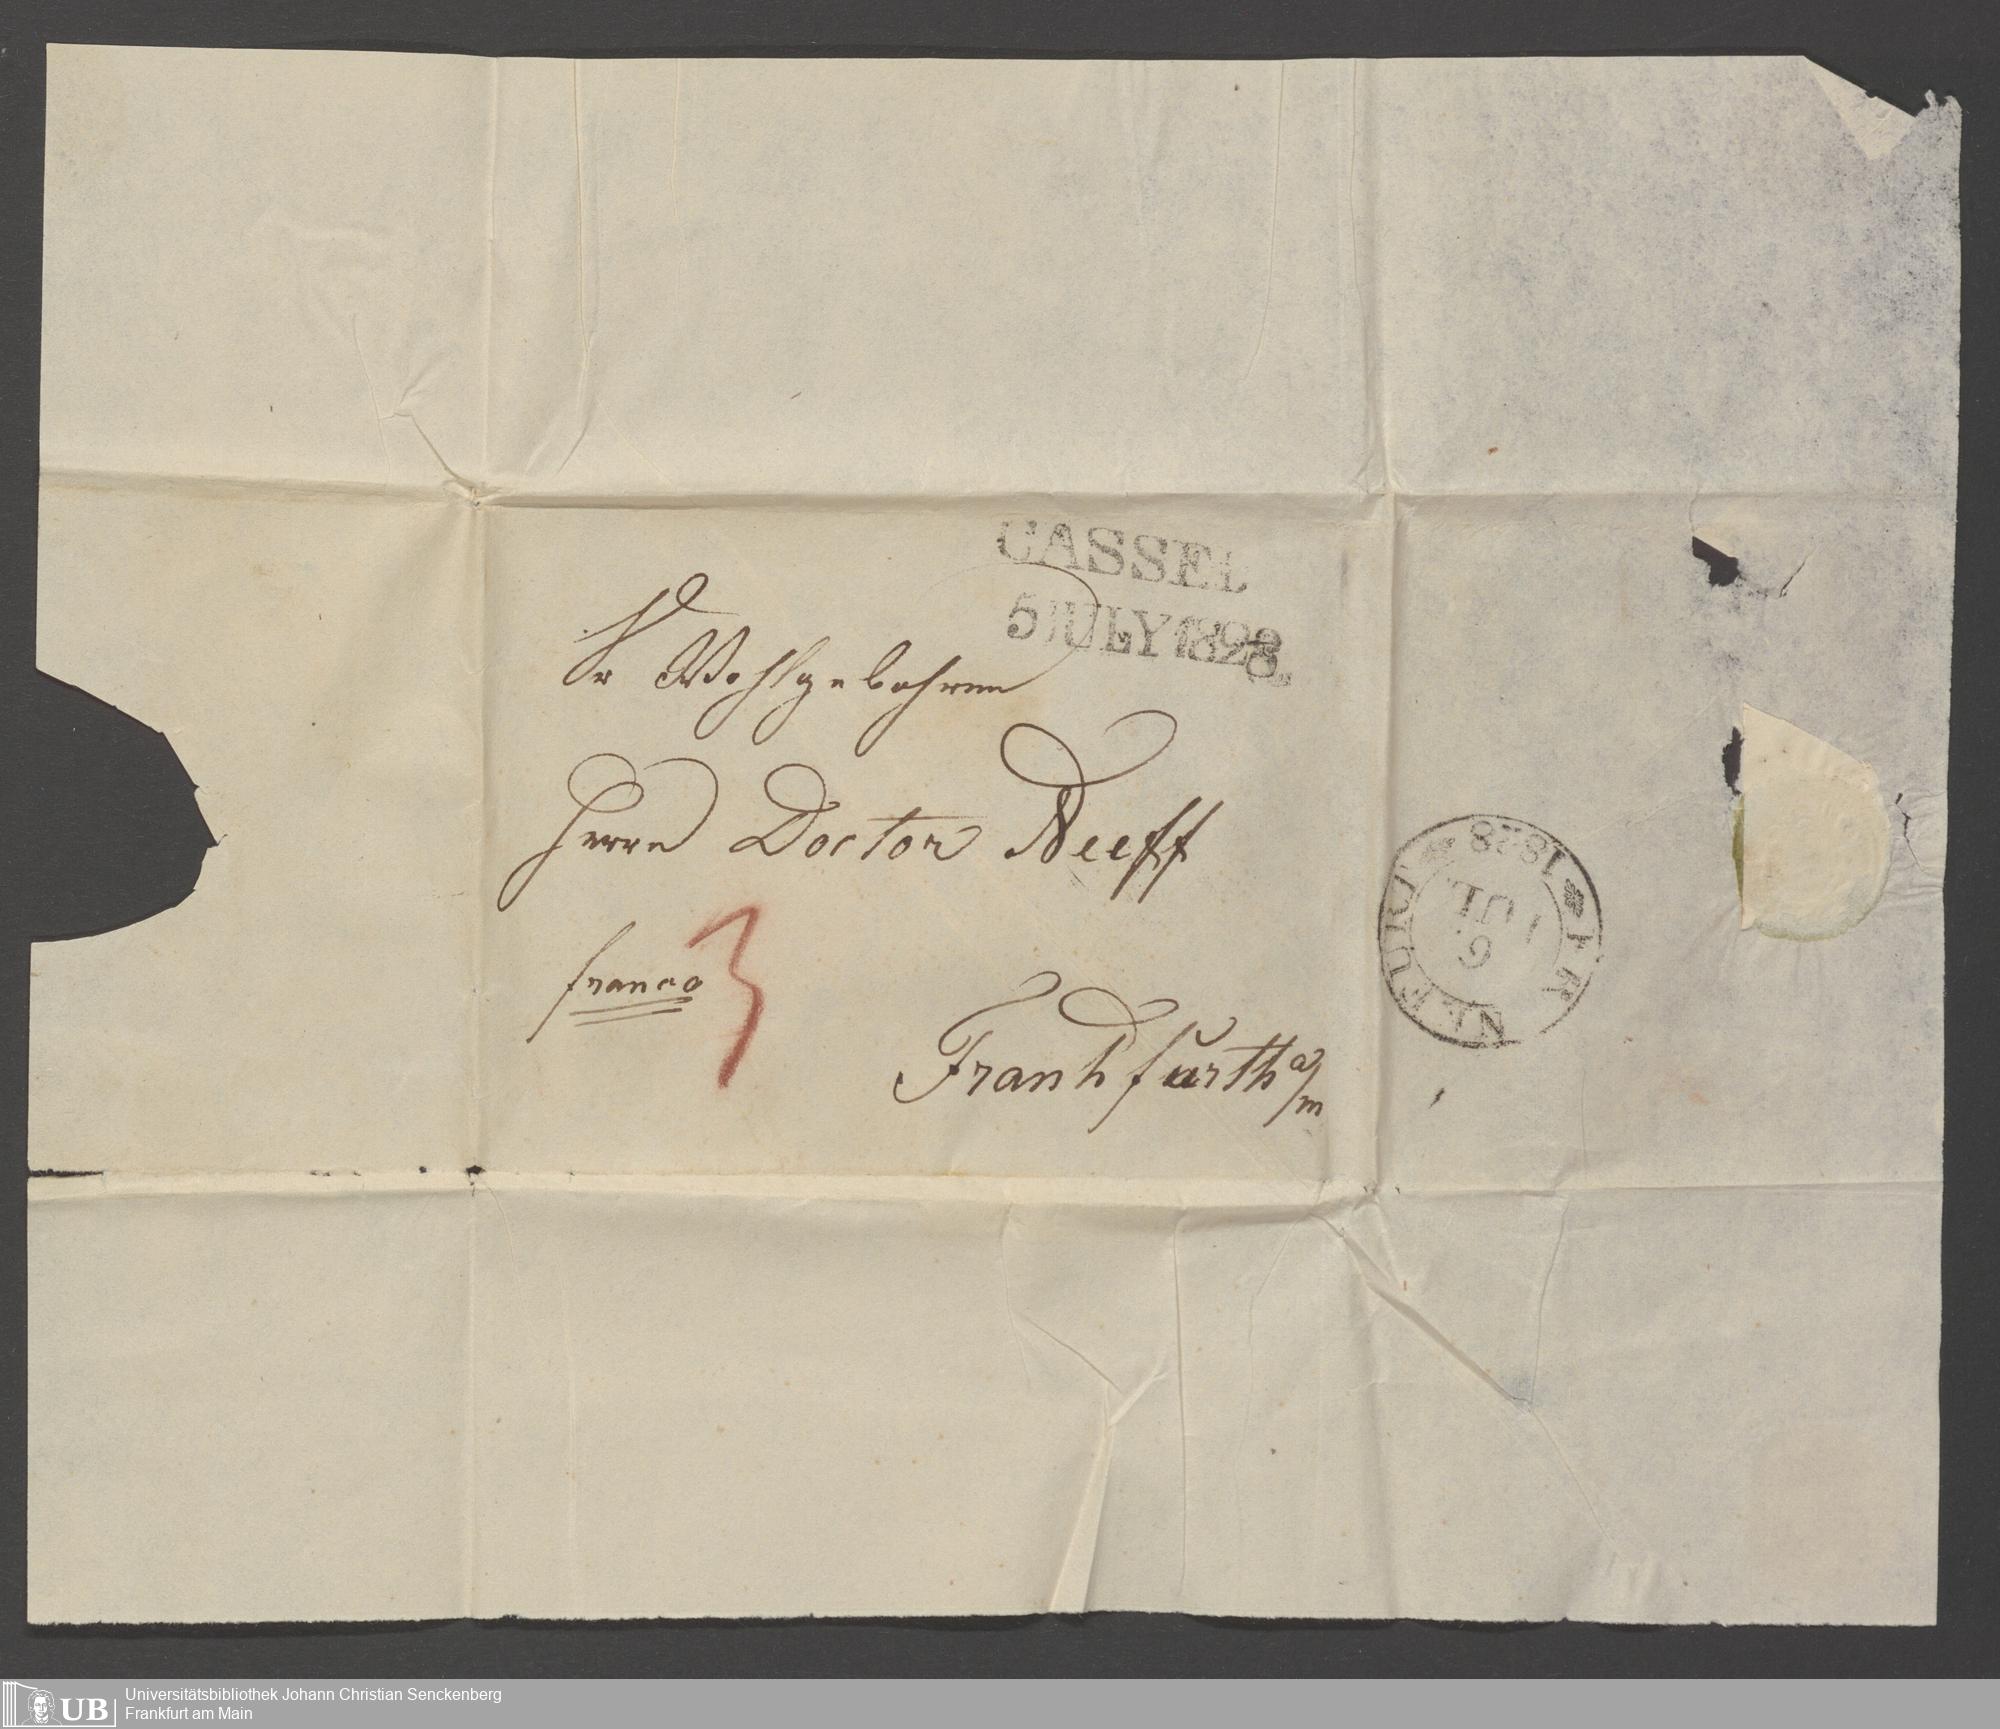 CASSEL
5 JULY 1828
Sr Wohlgebohren
Herrn Doctor Neeff
franco
3
Frankfurth a/m
FRANKFURT
6
JUL.
1828
UB
Universitätsbibliothek Johann Christian Senckenberg
Frankfurt am Main